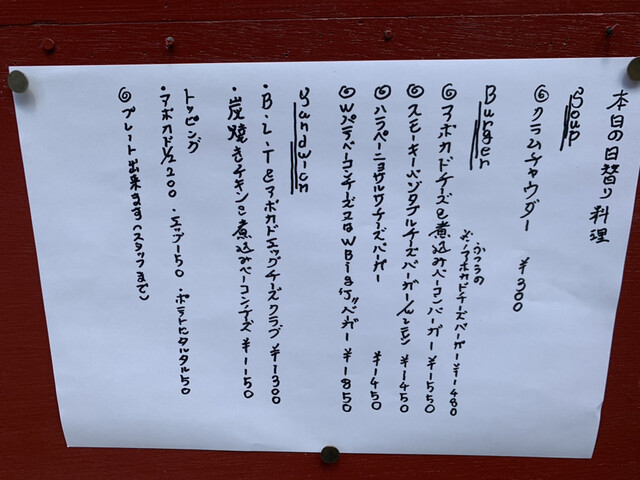 本日の日替り料理
Soup
◎クラムチャウダー ¥300
Burger
ふつうの
アボカドチーズバーガー¥1480
◎アボカドチーズと煮込みベーコンバーガー ¥1550
◎スモーキーベジタブルチーズバーガー ¥1450
◎ハラペーニョサルサチーズバーガー ¥1450
◎Wパテベーコンチーズ 又は WBig バーガー ¥1850
Sandwich
・B・L・T & アボカドエッグチーズクラブ ¥1300
・炭焼きチキンと煮込みベーコンチーズ ¥1150
トッピング
・アボカド1/2 200 ・エッグ150 ・ポテトにタルタル50
◎プレート出来ます(スタッフまで)